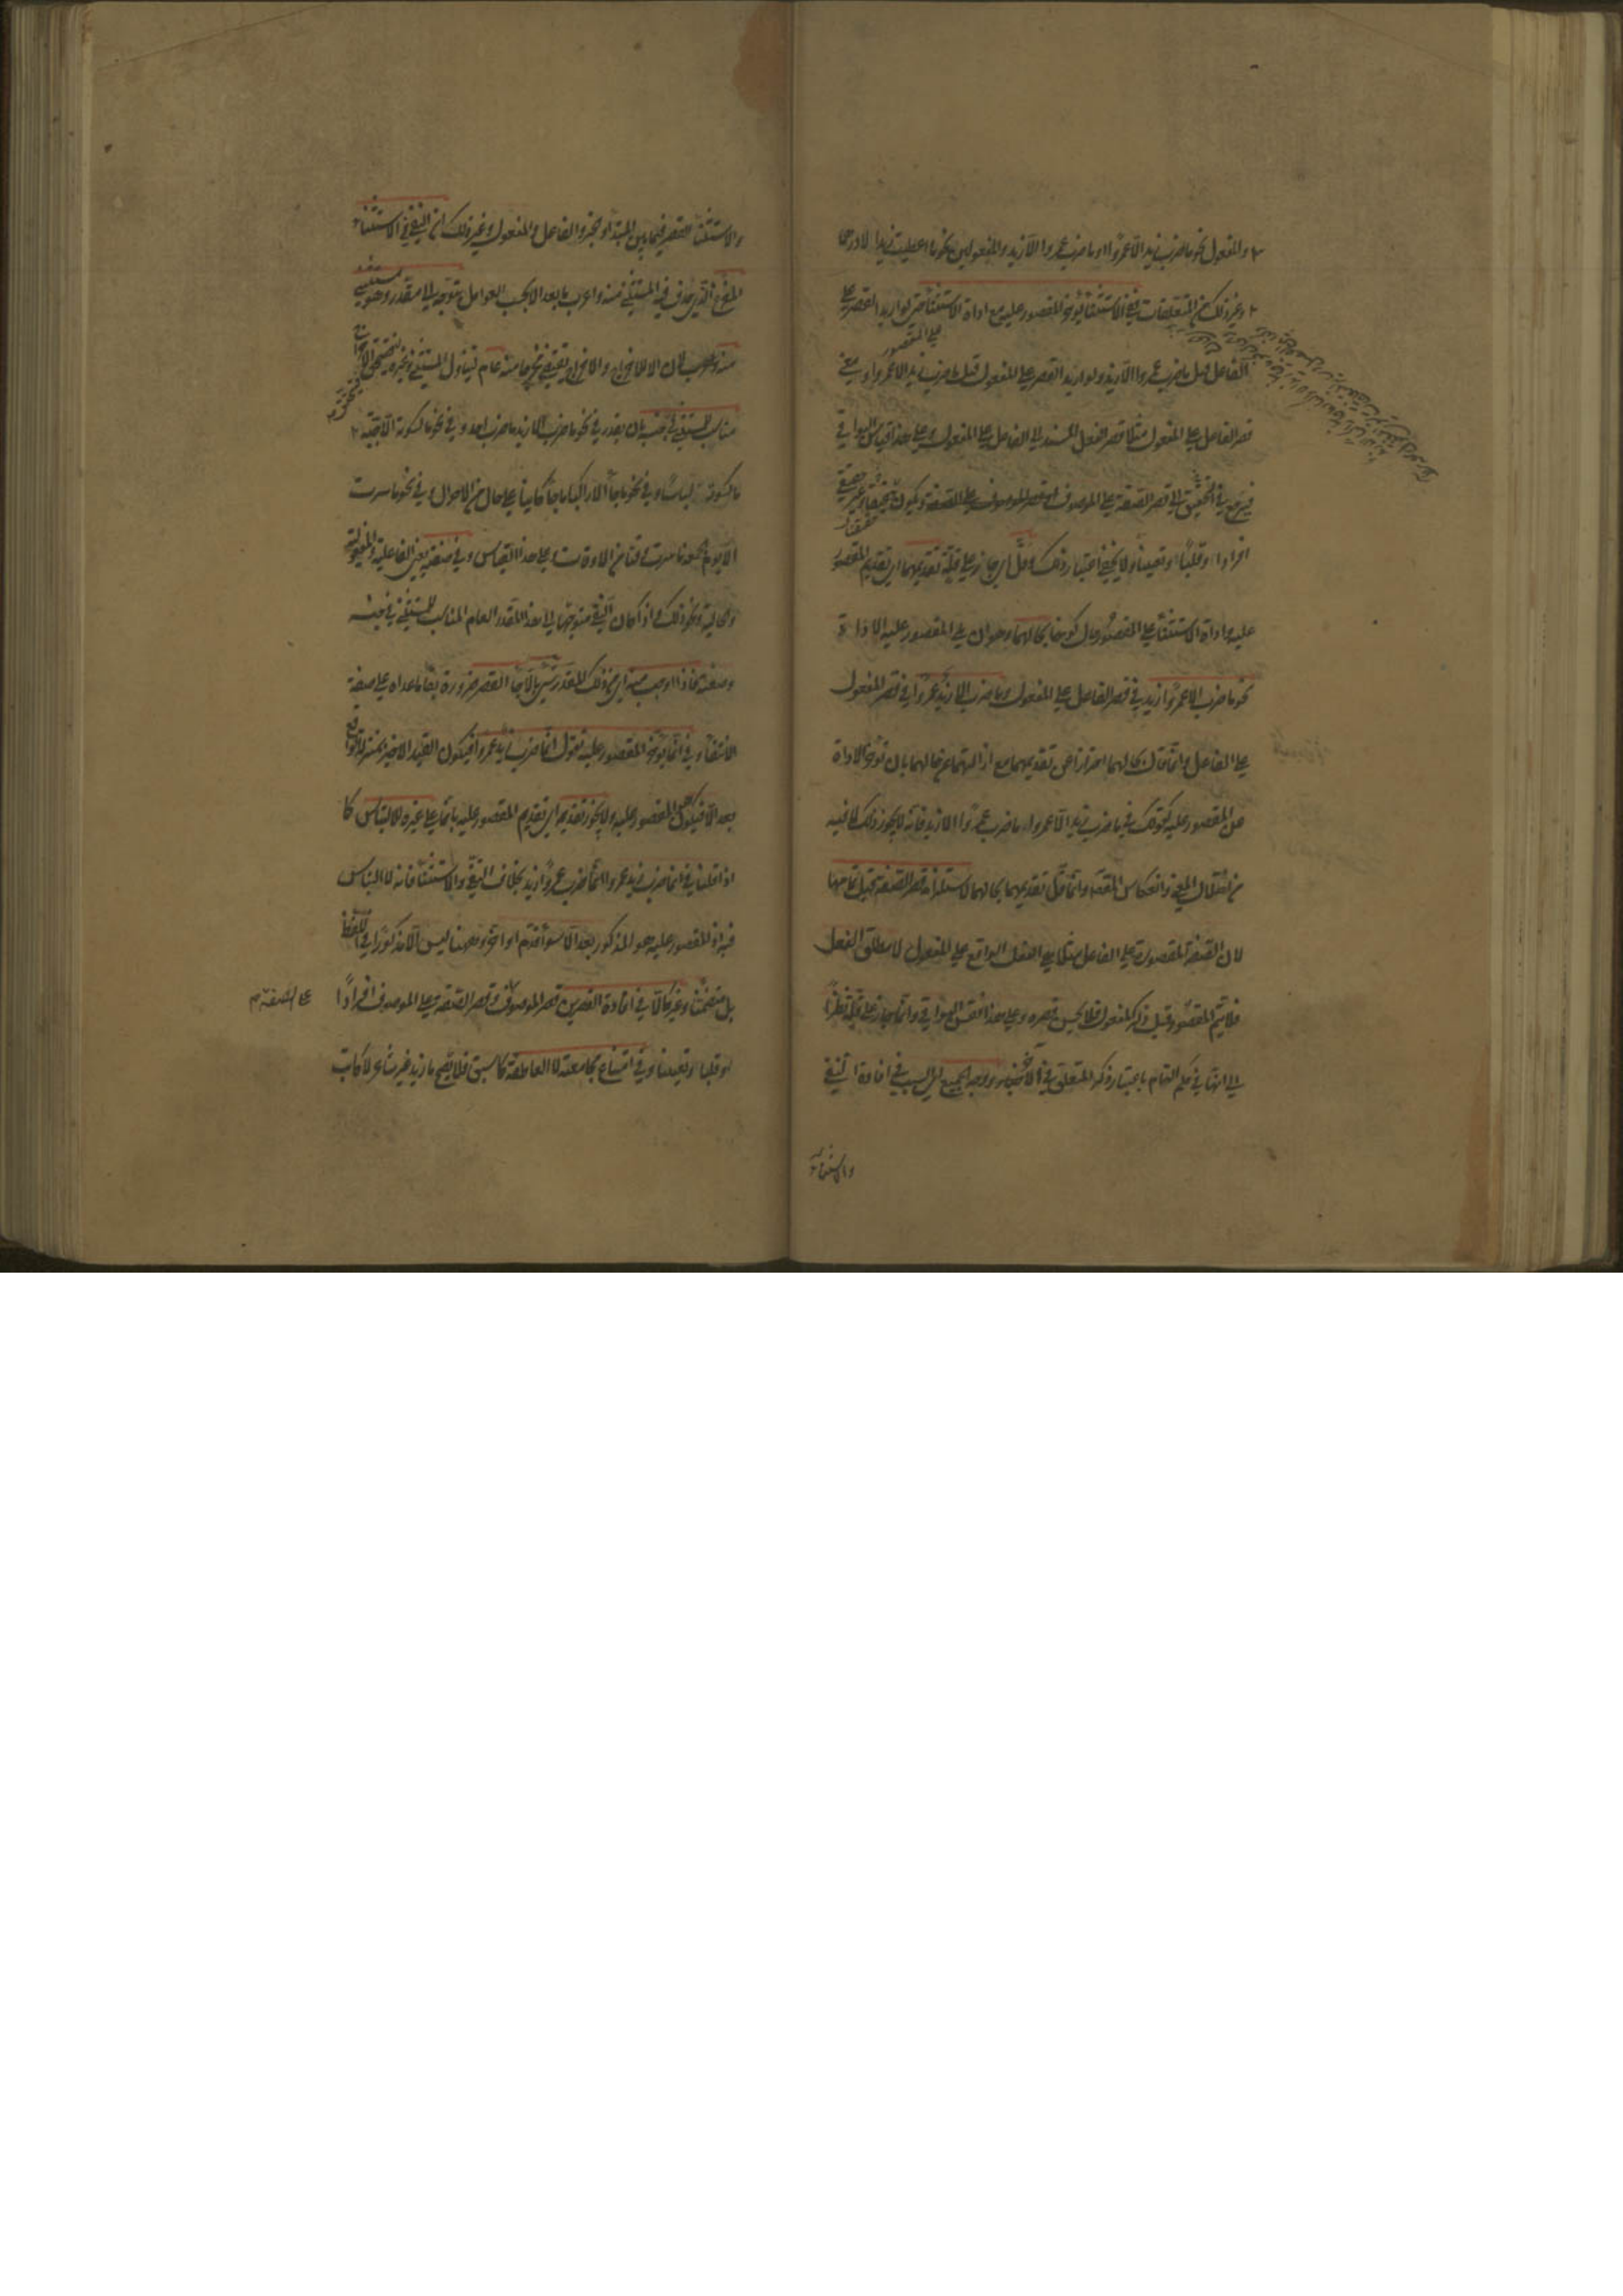 والمفعول نحو ما ضرب زيد الا عمروا او ما ضرب عمروا الا زيد والمفعولين نحو ما اعطيت زيدا الا درهما
وغير ذلك من المتعلقات ففي الاستثناء يؤخر المقصور عليه مع اداة الاستثناء حتى لو اريد القصر على
الفاعل قيل ما ضرب عمروا الا زيد ولو اريد القصر على المفعول قيل ما ضرب زيد الا عمروا ومعنى
قصر الفاعل على المفعول مثلا قصر الفعل المسند الى الفاعل على المفعول وعلى هذا قياس البواقي
فيرجع في التحقيق الى قصر الصفة على الموصوف او قصر الموصوف على الصفة ويكون حقيقيا وغير حقيقي
افرادا وقلبا وتعيينا ولا يخفى اعتبار ذلك وقل اي جاز على قلة تقديمهما اي تقديم المقصور
عليه واداة الاستثناء على المقصور حال كونهما بحالهما وهو ان يلي المقصور عليه الاداة
نحو ما ضرب الا عمروا زيد في قصر الفاعل على المفعول وما ضرب الا زيد عمروا في قصر المفعول
على الفاعل وانما قال بحالهما احترازا عن تقديمهما مع ازالتهما عن حالهما بان تؤخر الاداة
عن المقصور عليه كقولك في ما ضرب زيد الا عمروا ما ضرب عمروا الا زيد فانه لا يجوز ذلك لما فيه
من اختلال المعنى وانعكاس المقصود وانما قل تقديمهما بحالهما لاستلزامه قصر الصفة قبل تمامها
لان الصفة المقصورة على الفاعل مثلا هي الفعل الواقع على المفعول لا مطلق الفعل
فلا يتم المقصور قبل ذكر المفعول فلا يحسن قصره وعلى هذا فقس البواقي وانما جاز على قلة نظرا
الى انها في حكم التام باعتبار ذكر المتعلق في الآخر ووجه الجميع اي السبب في افادة النفي
والاستثناء
والاستثناء القصر فيما بين المبتدأ والخبر والفاعل والمفعول وغير ذلك ان النفي في الاستثناء
المفرغ الذي حذف فيه المستثنى منه واعرب ما بعد الا بحسب العوامل يتوجه الى مقدر وهو مستثنى
منه لان الا للاخراج والاخراج يقتضي مخرجا منه عام ليتناول المستثنى وغيره فيتحقق الاخراج
مناسب للمستثنى في جنسه بان يقدر في نحو ما ضرب الا زيد ما ضرب احد وفي نحو ما كسوته الا جبة
ما كسوته لباسا وفي نحو ما جاء الا راكبا ما جاء كائنا على حال من الاحوال وفي نحو ما سرت
الا يوم الجمعة ما سرت وقتا من الاوقات وعلى هذا القياس وفي صفته يعني الفاعلية والمفعولية
والحالية ونحو ذلك واذا كان النفي متوجها الى هذا المقدر العام المناسب للمستثنى في جنسه
وصفته فاذا اوجب منه اي من ذلك المقدر شيء بالا جاء القصر ضرورة بقاء ما عداه على صفة
الانتفاء وفي انما يؤخر المقصور عليه تقول انما ضرب زيد عمروا فيكون القيد الاخير بمنزلة الواقع
بعد الا فيكون هو المقصور عليه ولا يجوز تقديمه اي تقديم المقصور عليه بانما على غيره للالتباس كما
اذا قلنا في انما ضرب زيد عمروا انما ضرب عمروا زيد بخلاف النفي والاستثناء فانه لا التباس
فيه اذ المقصور عليه هو المذكور بعد الا سواء قدم او اخر وههنا ليس الا مذكورا في اللفظ
بل متضمنا وغير كالا في افادة القصرين قصر الموصوف وقصر الصفة على الموصوف افرادا
على الصفة
وقلبا وتعيينا وفي امتناع مجامعة لا العاطفة لما سبق فلا يصح ما زيد غير شاعر لا كاتب